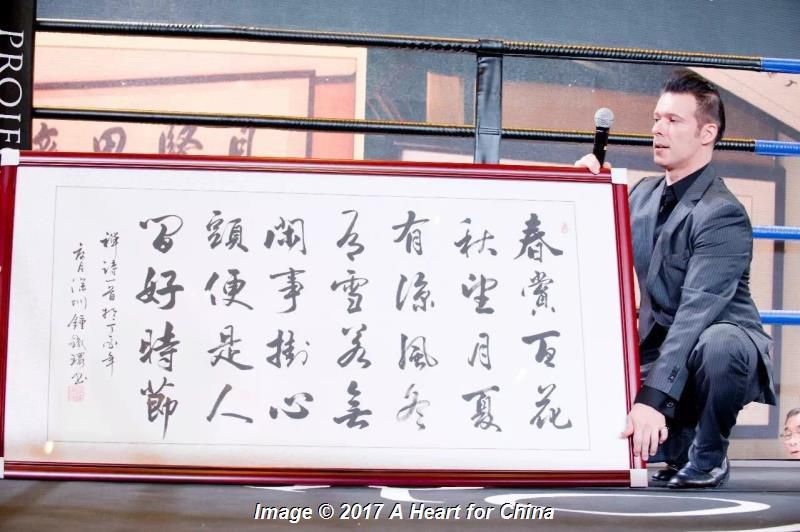 PROIF
春賞百花
秋望月夏
有涼風冬
有雪若無
閑事掛心
頭便是人
間好時節
禪詩一首於丁酉年
月深圳鍾
Image © 2017 A Heart for China